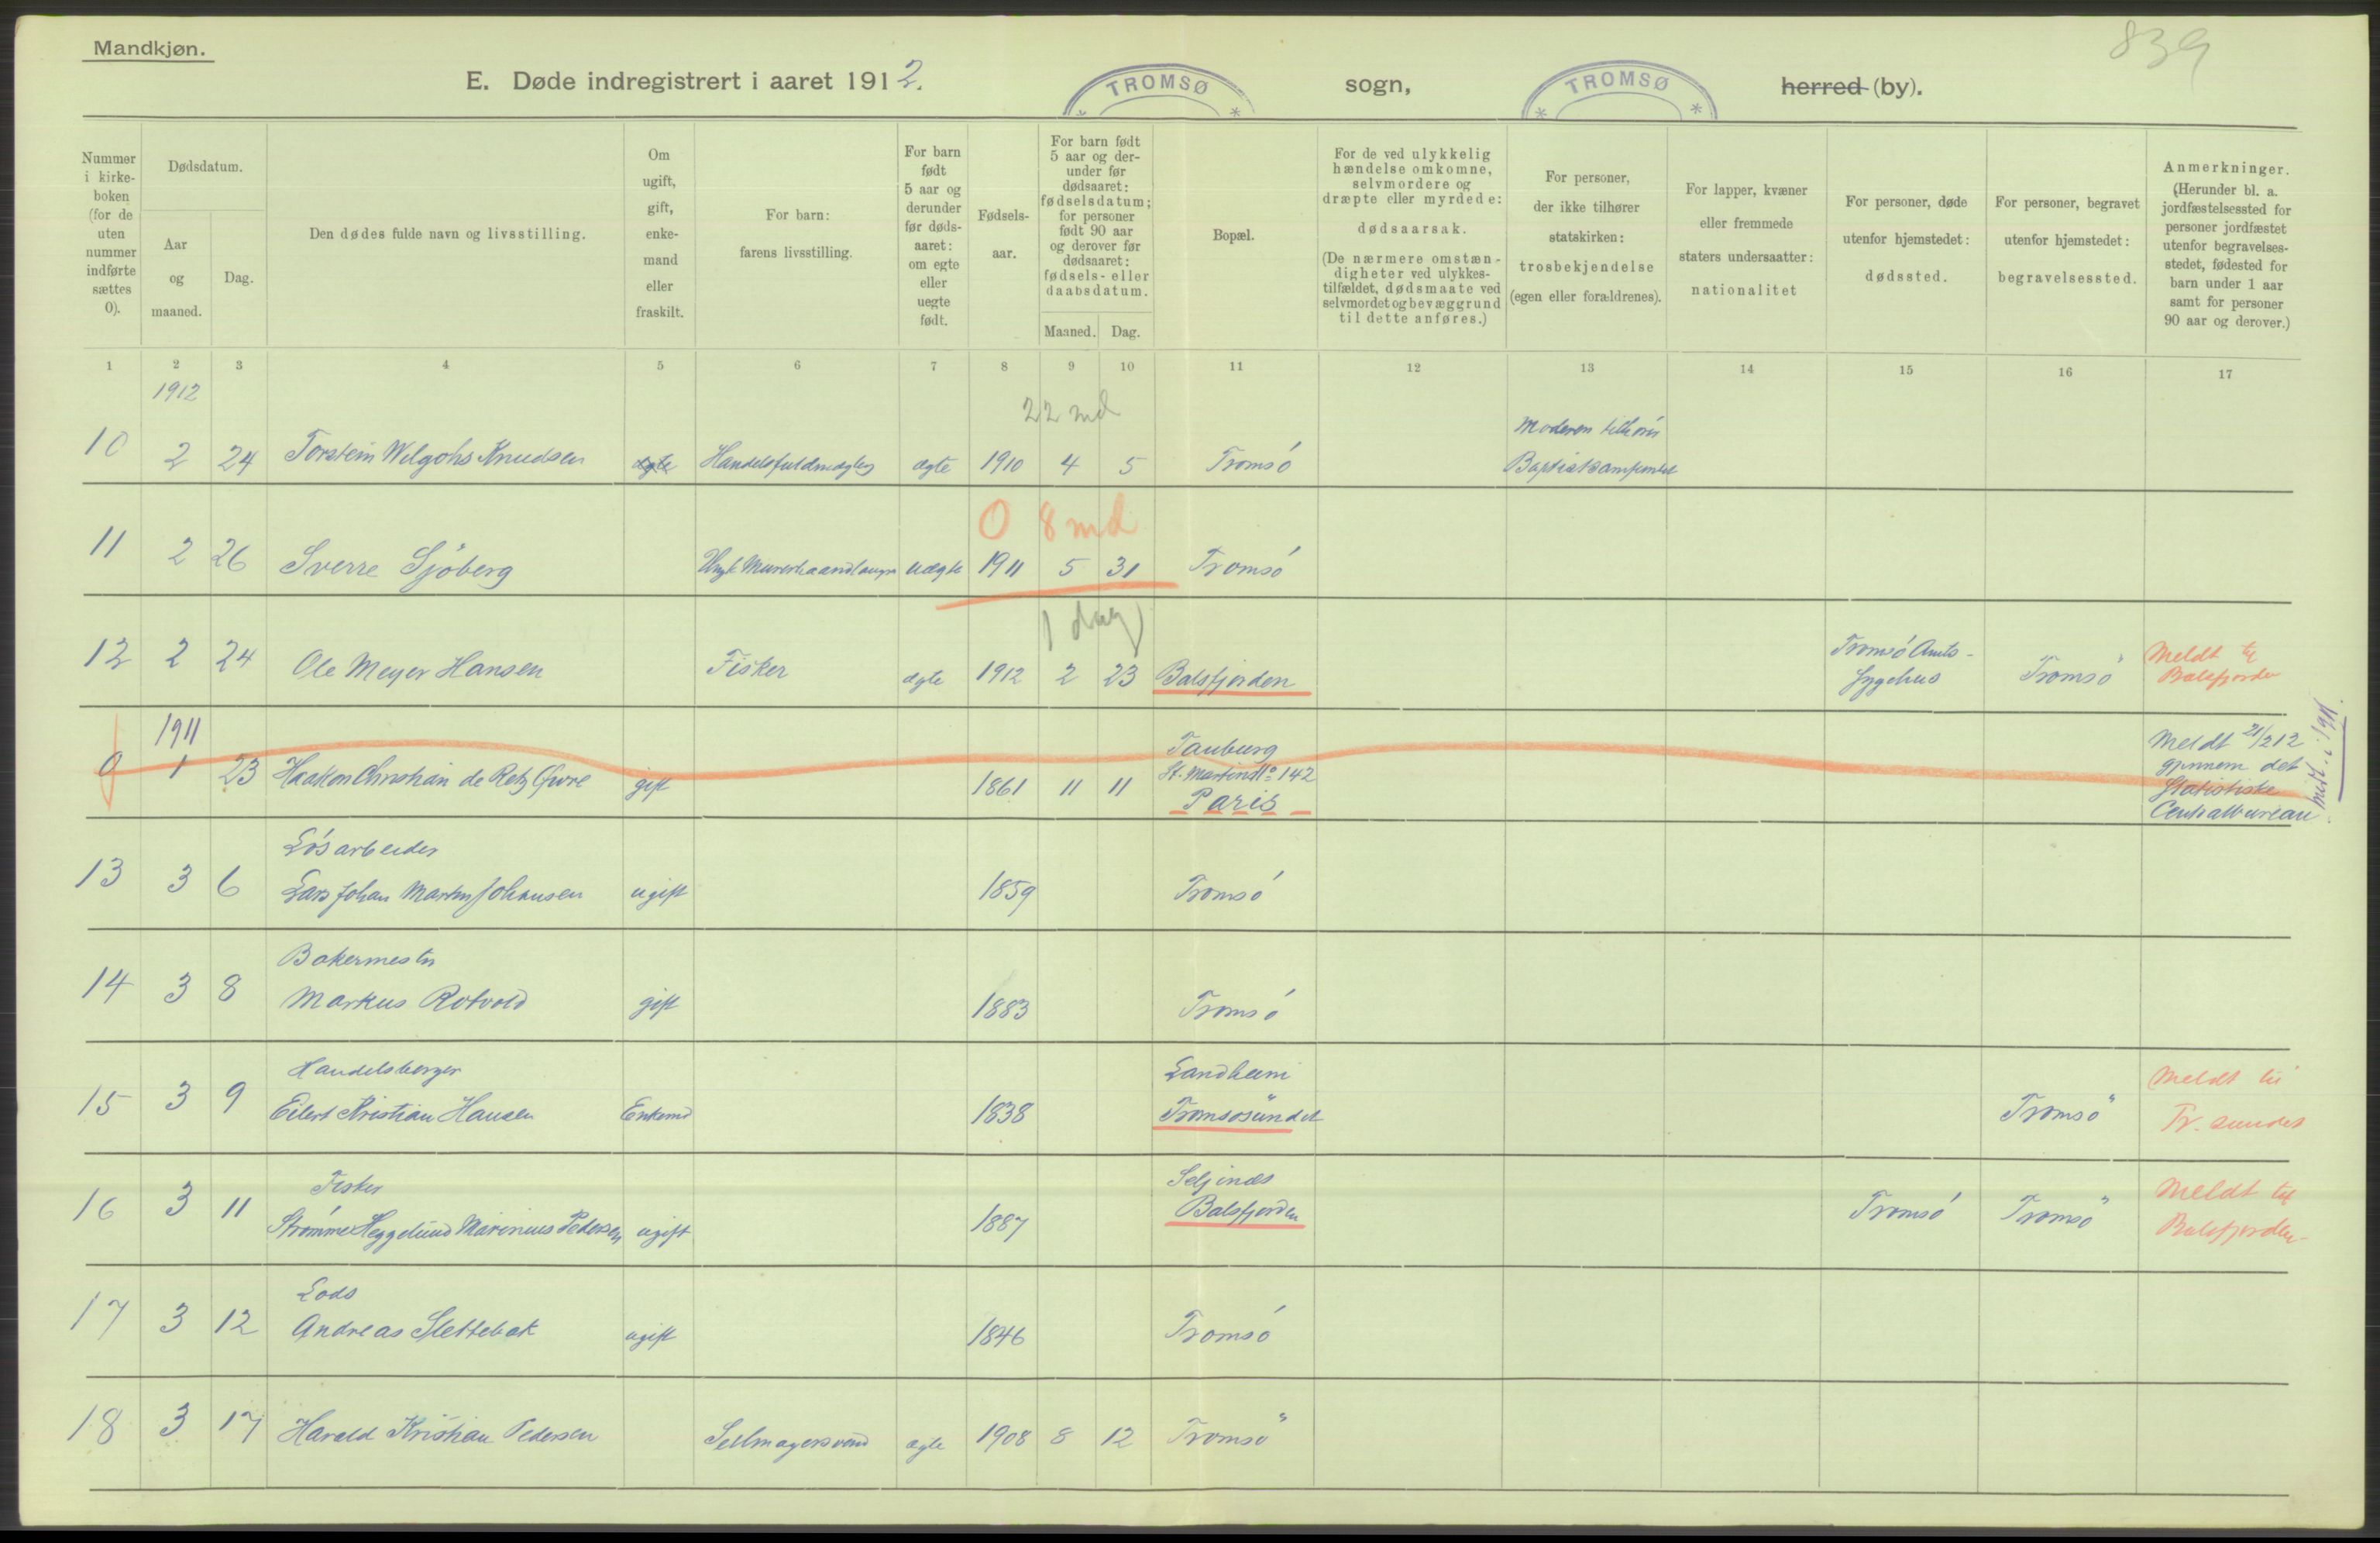 Mandkjøn.
839
E. Døde indregistrert i aaret 1912. TROMSØ sogn, TROMSØ herred (by).
Nummer i kirkeboken (for de uten nummer indførte sættes 0).
Dødsdatum.
Aar og maaned.
Dag.
Den dødes fulde navn og livsstilling.
Om ugift, gift, enkemand eller fraskilt.
For barn: farens livsstilling.
For barn født 5 aar og derunder før dødsaaret: om egte eller uegte født.
Fødselsaar.
For barn født 5 aar og derunder før dødsaaret: fødselsdatum; for personer født 90 aar og derover før dødsaaret: fødsels- eller daabsdatum.
Maaned. Dag.
Bopæl.
For de ved ulykkelig hændelse omkomne, selvmordere og dræpte eller myrdede: dødsaarsak. (De nærmere omstændigheter ved ulykkestilfældet, dødsmaate ved selvmordet og bevæggrund til dette anføres.)
For personer, der ikke tilhører statskirken: trosbekjendelse (egen eller forældrenes).
For lapper, kvæner eller fremmede staters undersaatter: nationalitet
For personer, døde utenfor hjemstedet: dødssted.
For personer, begravet utenfor hjemstedet: begravelsessted.
Anmerkninger. (Herunder bl. a. jordfæstelsessted for personer jordfæstet utenfor begravelsesstedet, fødested for barn under 1 aar samt for personer 90 aar og derover.)
1 2 3 4 5 6 7 8 9 10 11 12 13 14 15 16 17
1912
22 md
Moderen tilhører
10 2 24 Torstein Welgohs Knudsen ægte Handelsfuldmægtig ægte 1910 4 5 Tromsö
0 8 md
11 2 26 Sverre Sjöberg Ungk Murerhaandlanger uægte 1911 5 31 Tromsö
1 dag
12 2 24 Ole Meyer Hansen Fisker ægte 1912 2 23 Balsfjorden Tromsö Amts-Sygehus Tromsö Meldt til Balsfjorden
1911
0 1 23 Haakon Christian de Retz gift 1861 11 11 St. Martin No 142 Paris Meldt 21/2 12 gjennem det Statistiske Centralbureau
medt. i 1911.
Lösarbeider
13 3 6 Lars Johan Martin Johansen ugift 1859 Tromsö
Bakermester
14 3 8 Markus Rotvold gift 1883 Tromsö
Handelsborger
15 3 9 Eilert Kristian Hansen Enkemd 1838 Landheim Tromsøsundet Tromsö Meldt til Tr. sundet
Fisker
16 3 11 Strømme Heggelund Marinius Pedersen ugift 1887 Seljenes Balsfjorden Tromsö Tromsö Meldt til Balsfjorden
Lods
17 3 12 Andreas Slettebak ugift 1846 Tromsö
18 3 17 Harald Kristian Pedersen ægte 1908 8 12 Tromsö